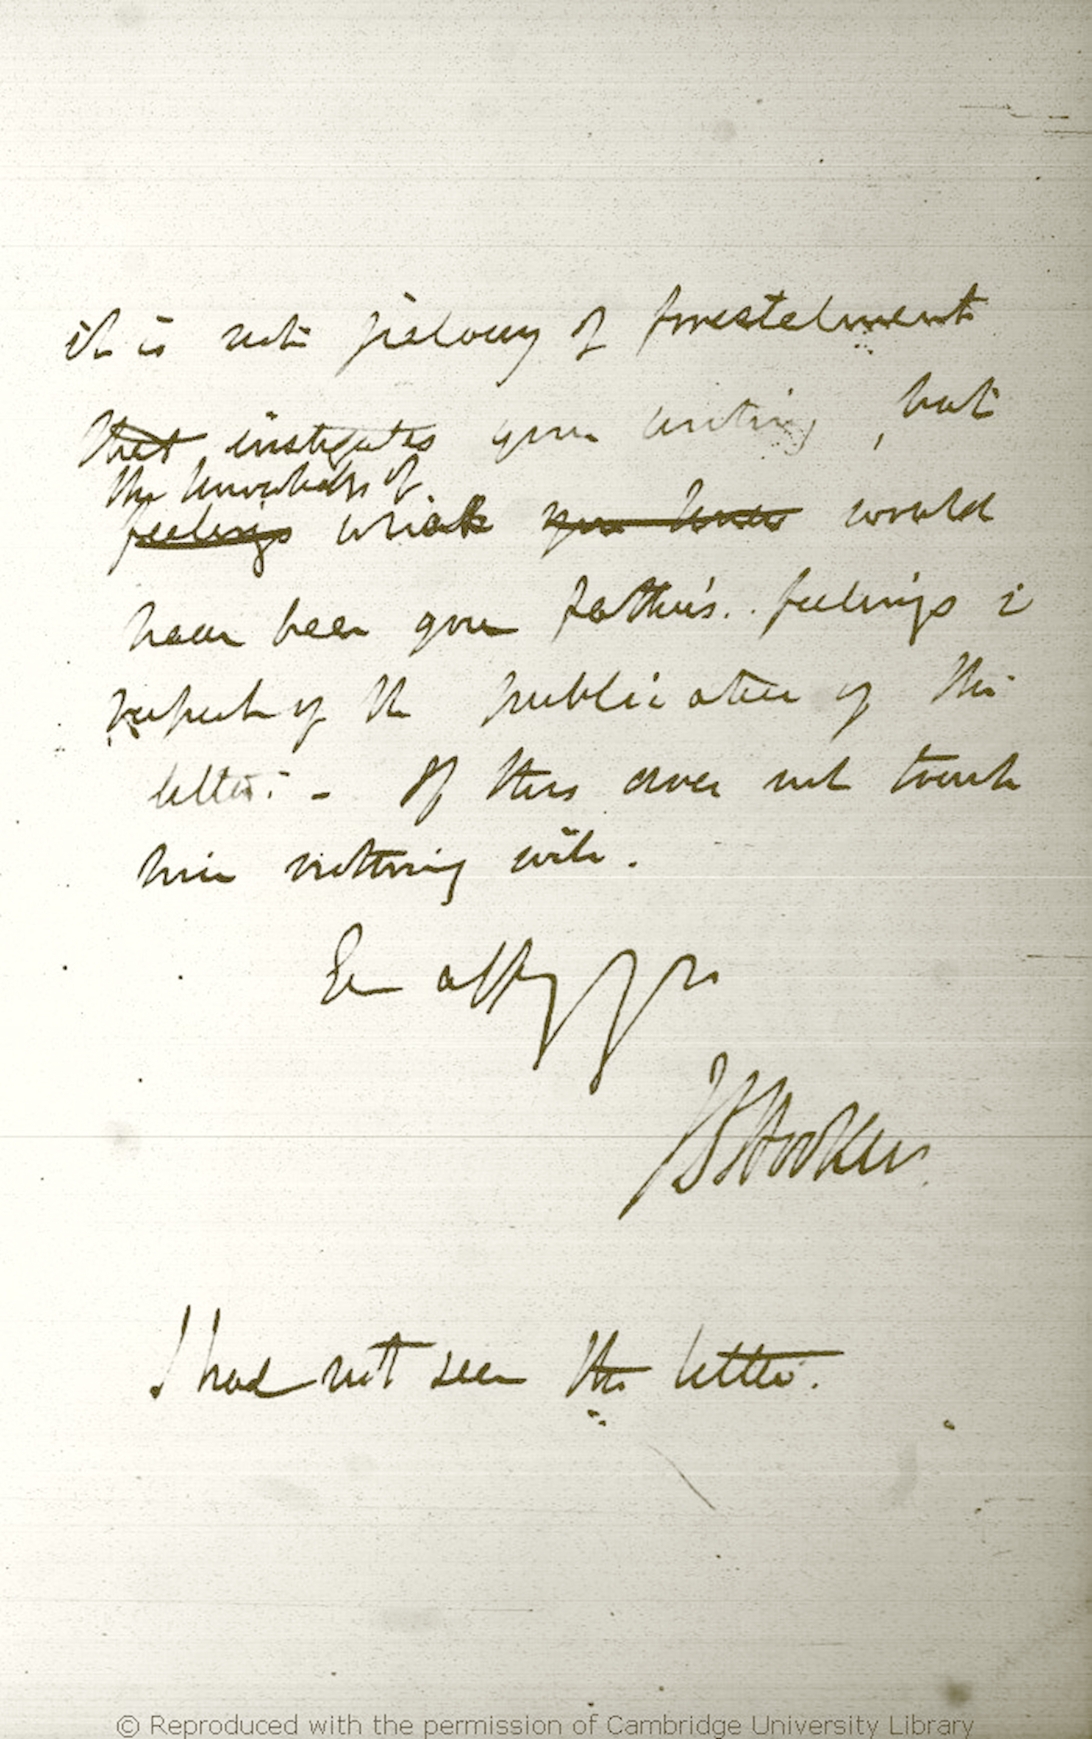 it is not jealousy of forestalment
that instigates your writing, but
the knowledge of
feelings which you knew would
have been your father's feelings i
respect of the publication of the
letter: - If this does not touch
him nothing will.
Ev affy yrs
JDHooker
I had not seen the letter.
© Reproduced with the permission of Cambridge University Library